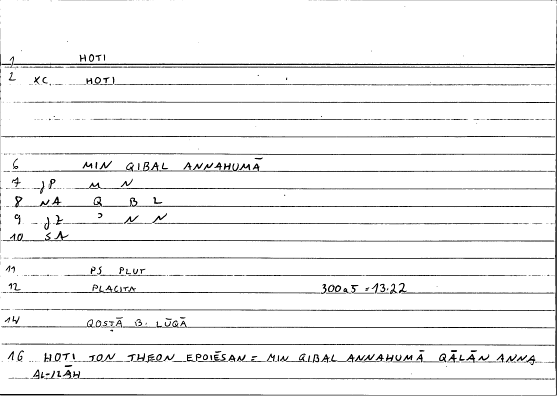 1 HOTI
2 XC HOTI
6 MIN QIBAL ANNAHUMĀ
7 JP M N
8 NA Q B L
9 JZ ʾ N N
10 SA
11 PS PLUT
12 PLACITA 300a5 = 13.22
14 QOSṬĀ B. LŪQĀ
16 HOTI TON THEON EPOIĒSAN = MIN QIBAL ANNAHUMĀ QĀLĀN ANNA
AL-ILĀH